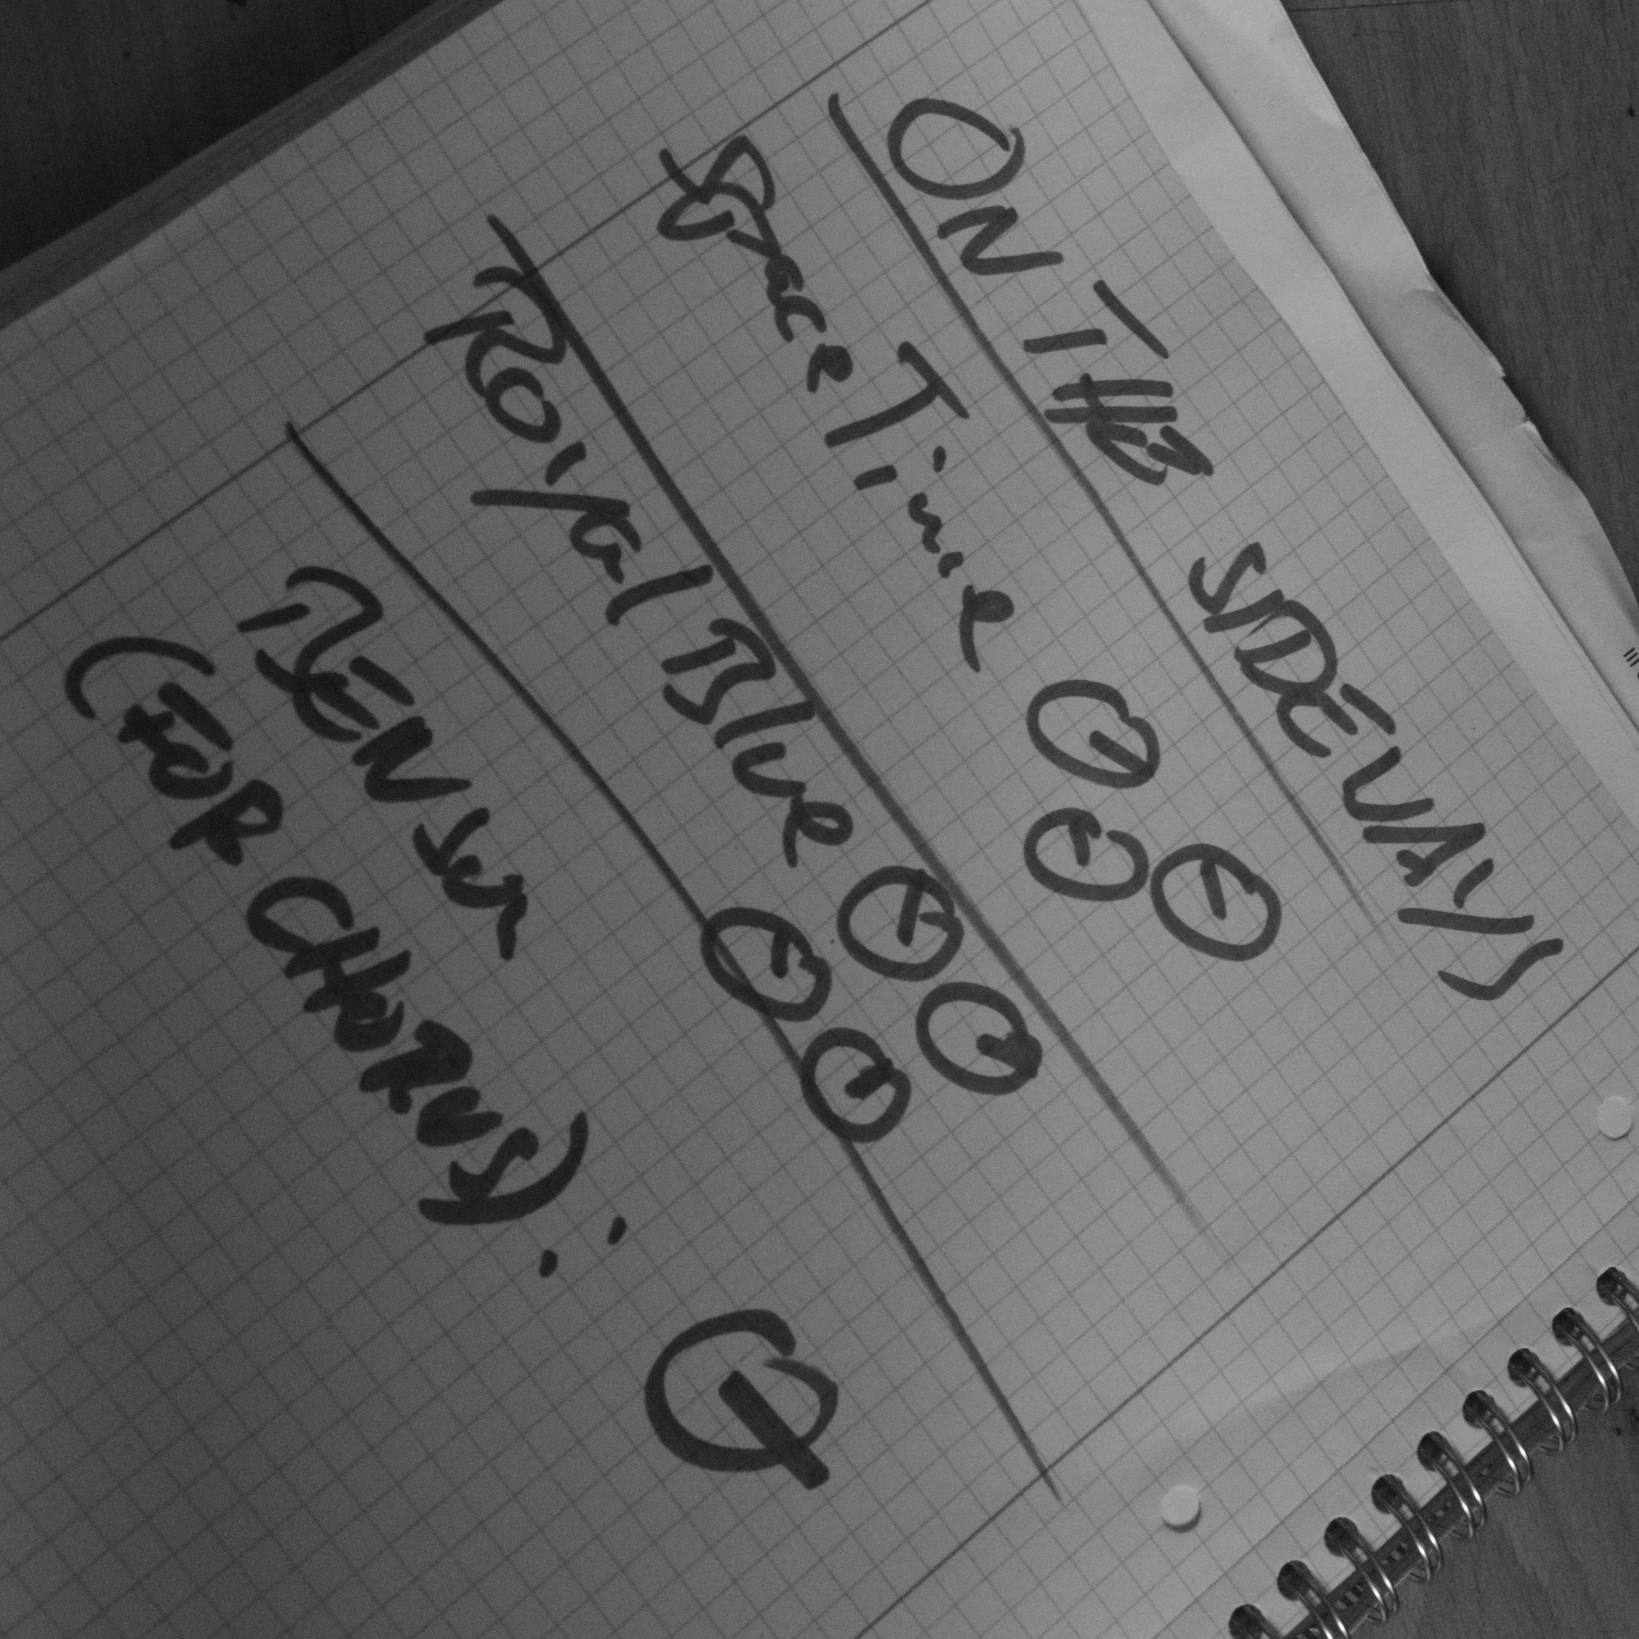 ON THE SIDEWAYS
Space Time
Royal Blue
(FOR CHORUS):